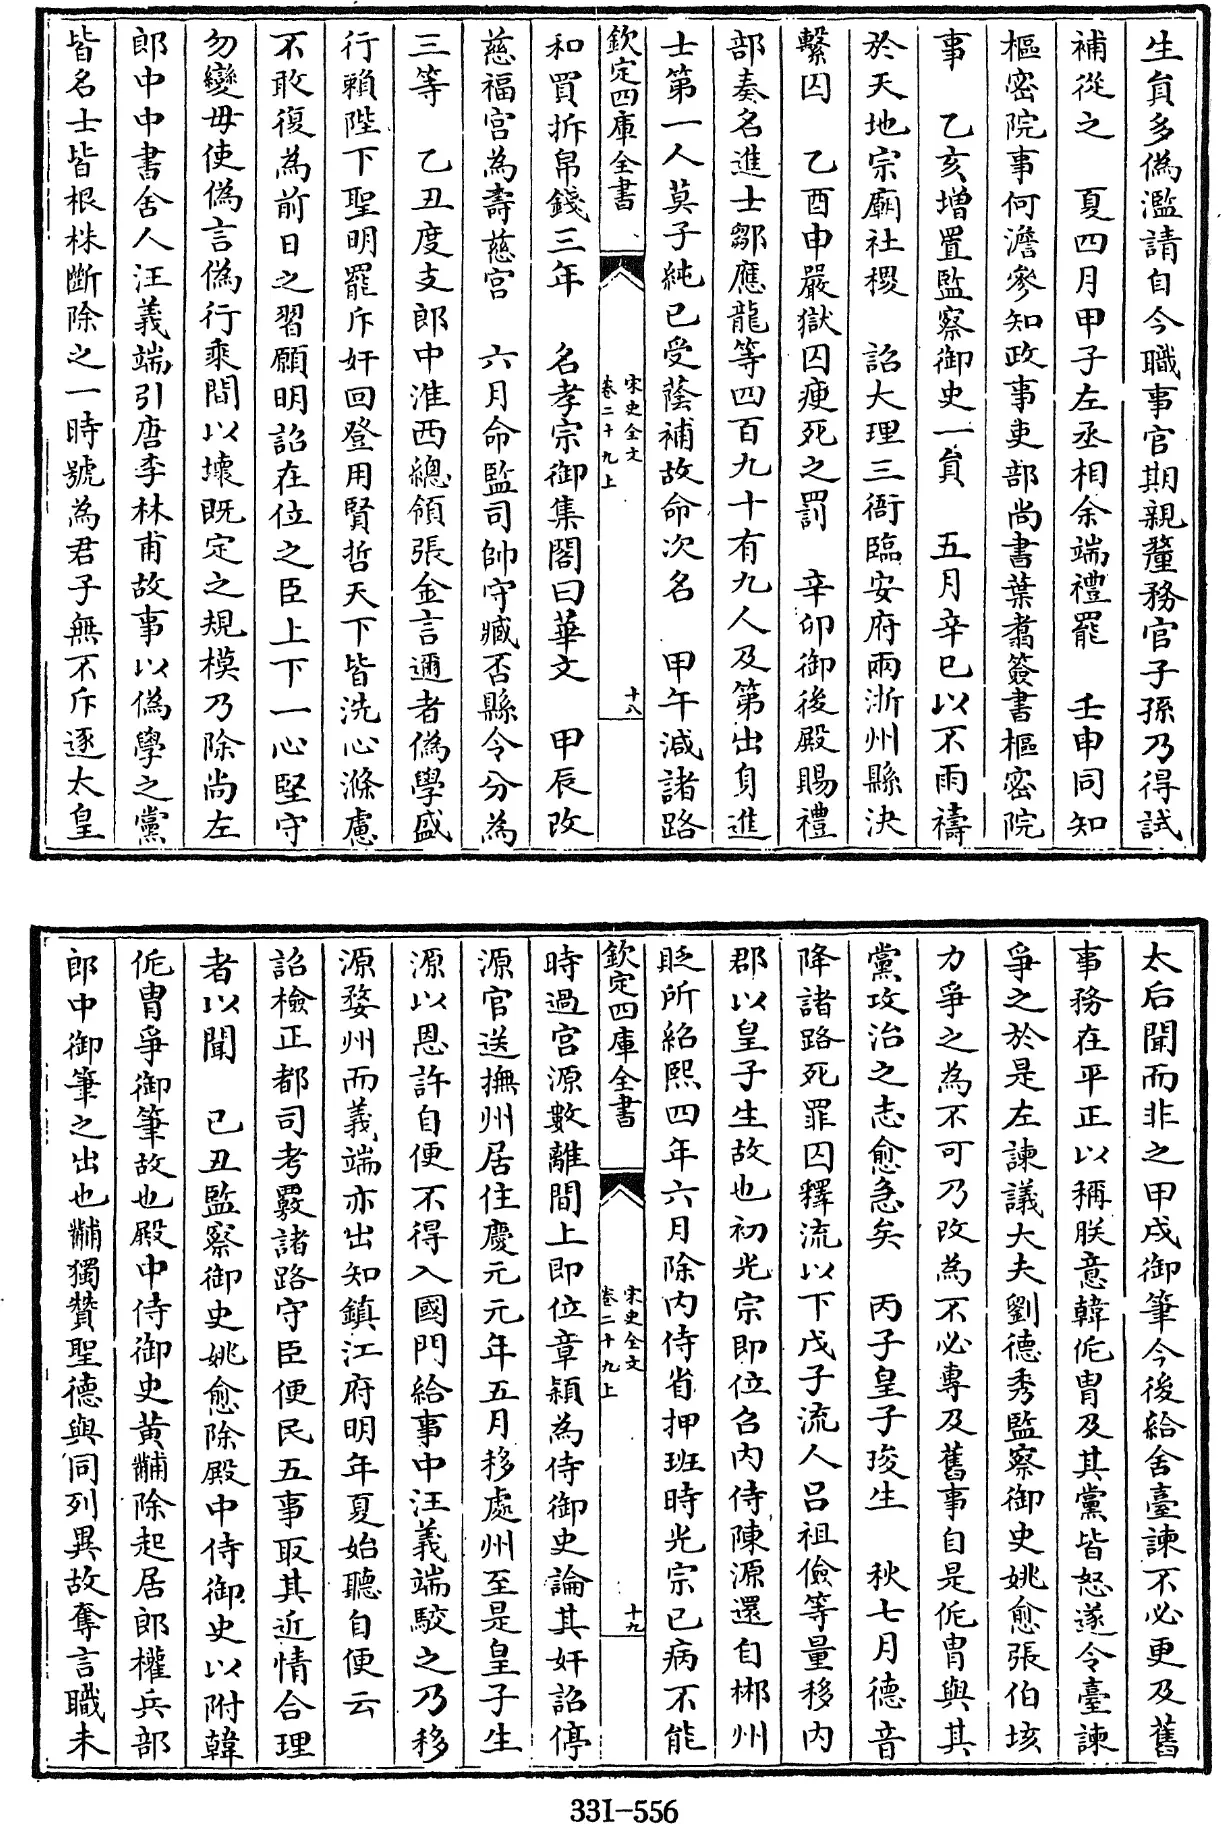 生員多偽濫請自今職事官期親釐務官子孫乃得試
補從之　夏四月甲子左丞相余端禮罷　壬申同知
樞密院事何澹參知政事吏部尚書葉翥簽書樞密院
事　乙亥增置監察御史一員　五月辛巳以不雨禱
於天地宗廟社稷　詔大理三衙臨安府兩浙州縣決
繫囚　乙酉申嚴獄囚瘐死之罰　辛卯御後殿賜禮
部奏名進士鄒應龍等四百九十有九人及第出身進
士第一人莫子純已受蔭補故命次名　甲午減諸路
欽定四庫全書
宋史全文
卷二十九上
十八
和買折帛錢三年　名孝宗御集閣曰華文　甲辰改
慈福宮為壽慈宮　六月命監司帥守臧否縣令分為
三等　乙丑度支郎中淮西總領張金言邇者偽學盛
行賴陛下聖明罷斥奸回登用賢哲天下皆洗心滌慮
不敢復為前日之習願明詔在位之臣上下一心堅守
勿變毋使偽言偽行乘間以壞既定之規模乃除尚左
郎中中書舍人汪義端引唐李林甫故事以偽學之黨
皆名士皆根株斷除之一時號為君子無不斥逐太皇
太后聞而非之甲戌御筆今後給舍臺諫不必更及舊
事務在平正以稱朕意韓侂胄及其黨皆怒遂令臺諫
爭之於是左諫議大夫劉德秀監察御史姚愈張伯垓
力爭之為不可乃改為不必專及舊事自是侂胄與其
黨攻治之志愈急矣　丙子皇子埈生　秋七月德音
降諸路死罪囚釋流以下戊子流人呂祖儉等量移內
郡以皇子生故也初光宗即位召內侍陳源還自郴州
貶所紹熙四年六月除內侍省押班時光宗已病不能
欽定四庫全書
宋史全文
卷二十九上
十九
時過宮源數離間上即位章穎為侍御史論其奸詔停
源官送撫州居住慶元元年五月移處州至是皇子生
源以恩許自便不得入國門給事中汪義端駮之乃移
源婺州而義端亦出知鎮江府明年夏始聽自便云
詔檢正都司考覈諸路守臣便民五事取其近情合理
者以聞　己丑監察御史姚愈除殿中侍御史以附韓
侂胄爭御筆故也殿中侍御史黃黼除起居郎權兵部
郎中御筆之出也黼獨贊聖德與同列異故奪言職未
33I-556